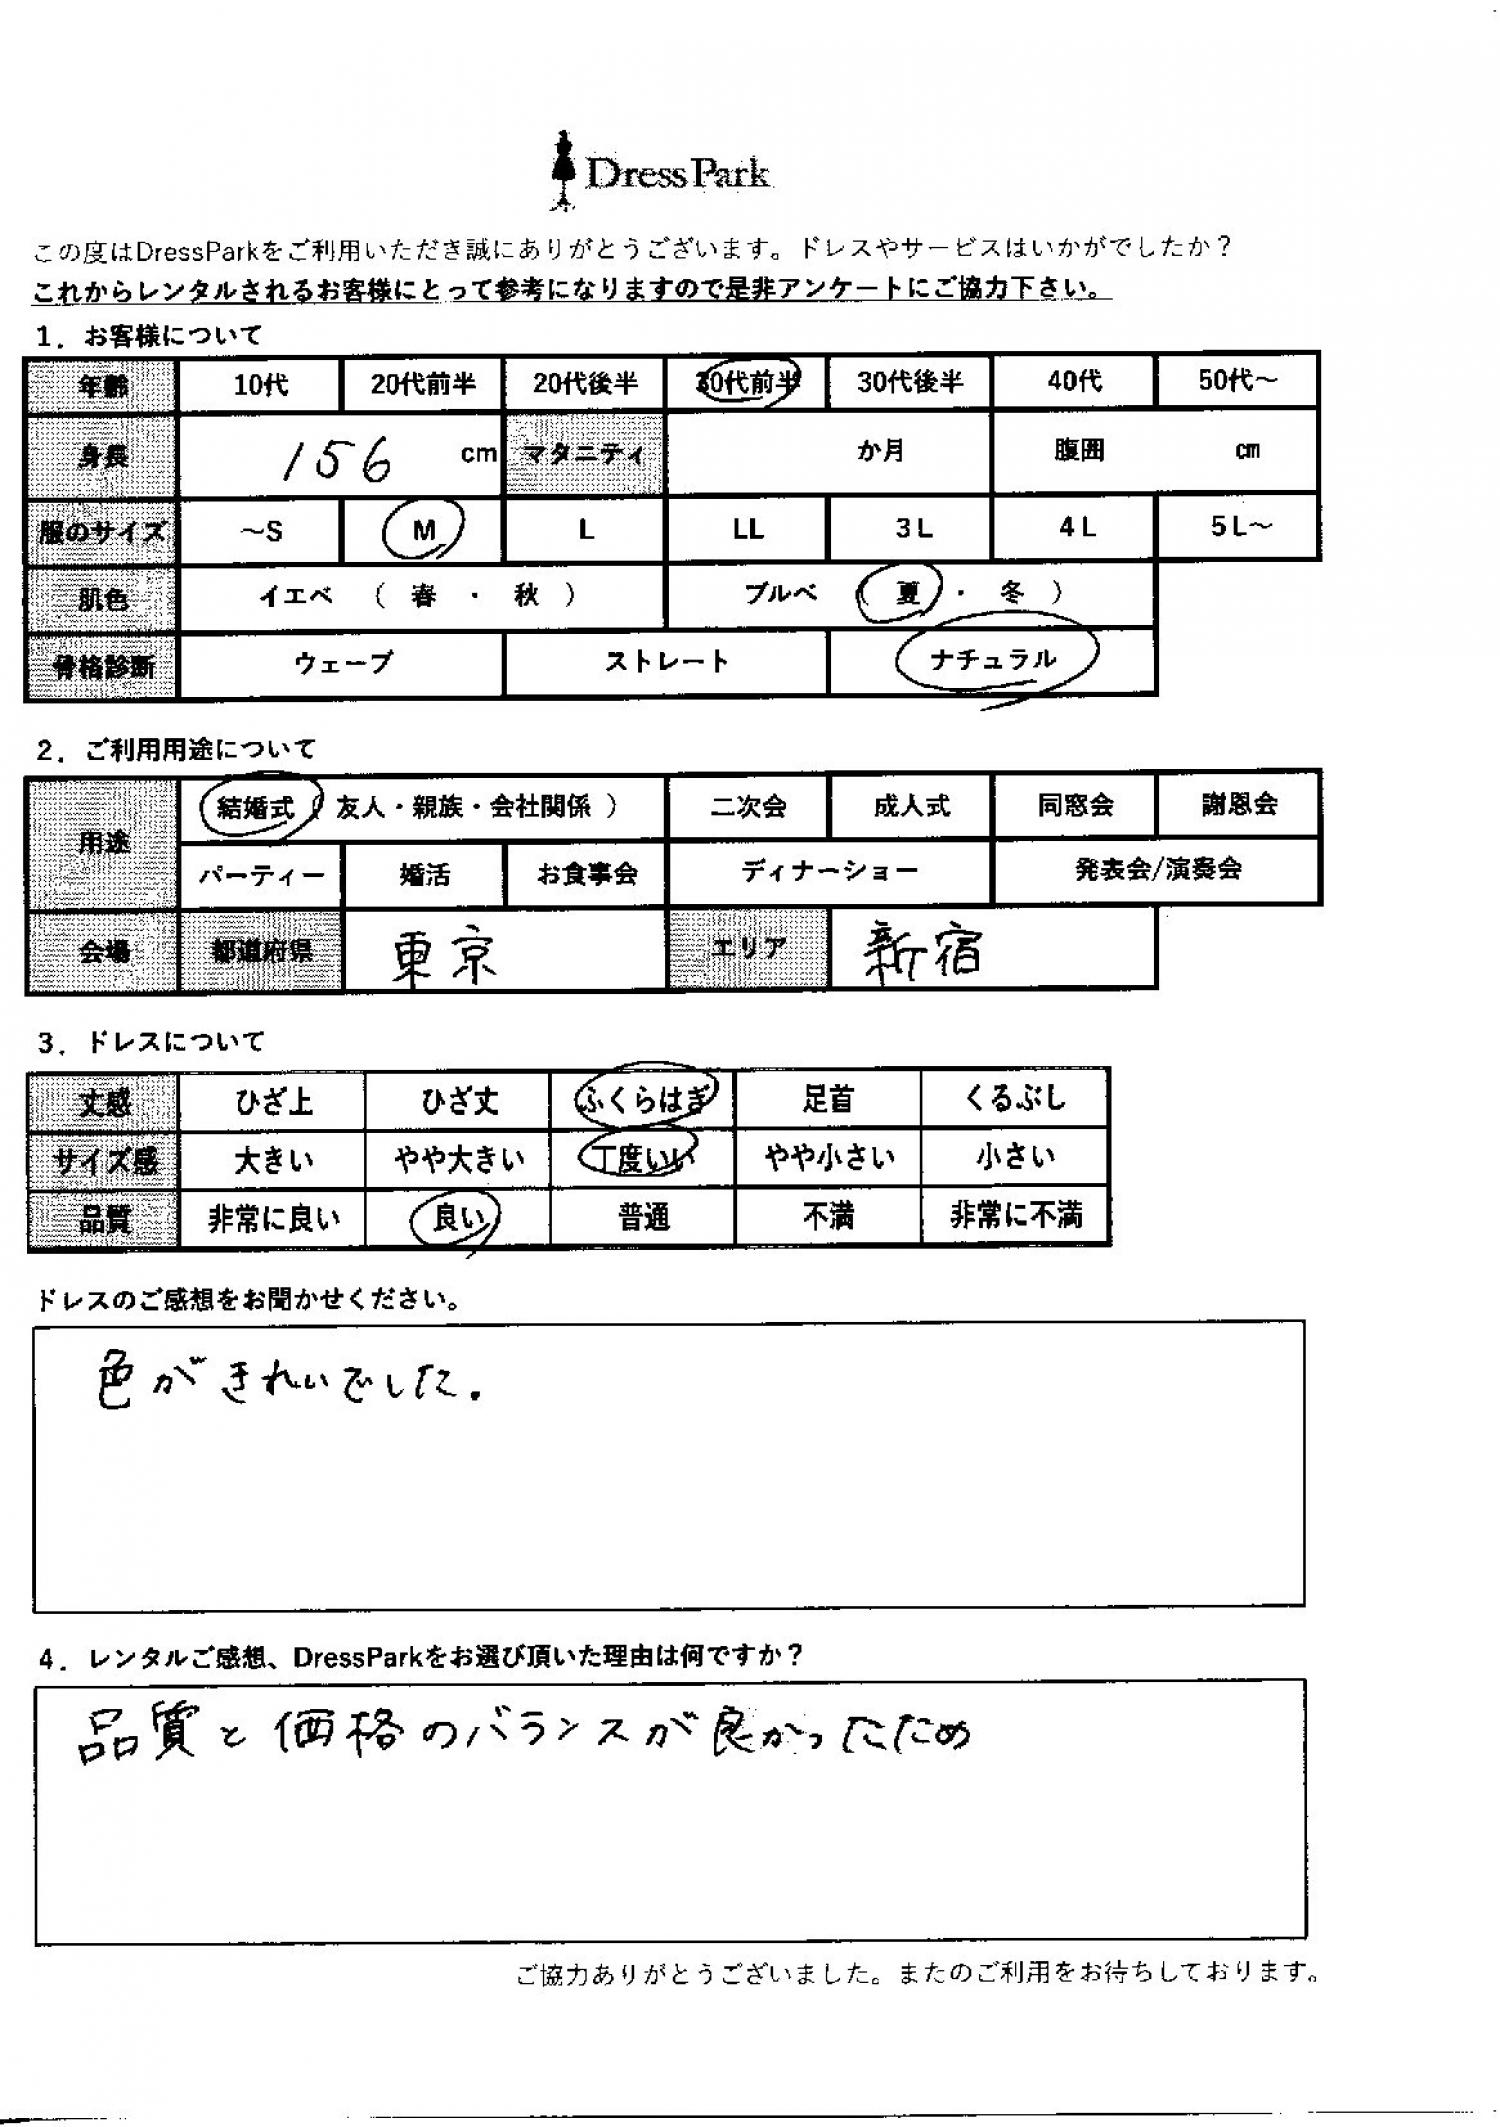 DressPark
この度はDressParkをご利用いただき誠にありがとうございます。ドレスやサービスはいかがでしたか？
これからレンタルされるお客様にとって参考になりますので是非アンケートにご協力下さい。
1．お客様について
年齢 10代 20代前半 20代後半 30代前半 30代後半 40代 50代～
身長 156 cm マタニティ か月 腹囲 cm
服のサイズ ～S M L LL 3L 4L 5L～
肌色 イエベ （ 春 ・ 秋 ） ブルベ （ 夏 ・ 冬 ）
骨格診断 ウェーブ ストレート ナチュラル
2．ご利用用途について
用途 結婚式（ 友人・親族・会社関係 ） 二次会 成人式 同窓会 謝恩会
パーティー 婚活 お食事会 ディナーショー 発表会/演奏会
会場 都道府県 東京 エリア 新宿
3．ドレスについて
丈感 ひざ上 ひざ丈 ふくらはぎ 足首 くるぶし
サイズ感 大きい やや大きい 丁度いい やや小さい 小さい
品質 非常に良い 良い 普通 不満 非常に不満
ドレスのご感想をお聞かせください。
色がきれいでした.
4．レンタルご感想、DressParkをお選び頂いた理由は何ですか？
品質と価格のバランスが良かったため
ご協力ありがとうございました。またのご利用をお待ちしております。